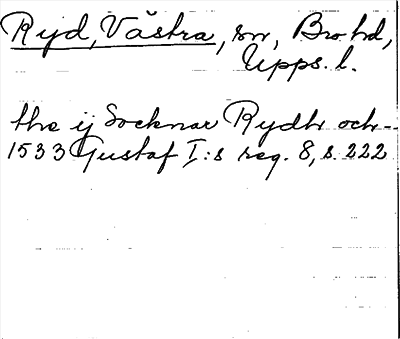 Ryd, Västra, sn, Bro hd,
Upps. l.
the ij Socknar Rydh och--
1533 Gustaf I:s reg. 8, s. 222